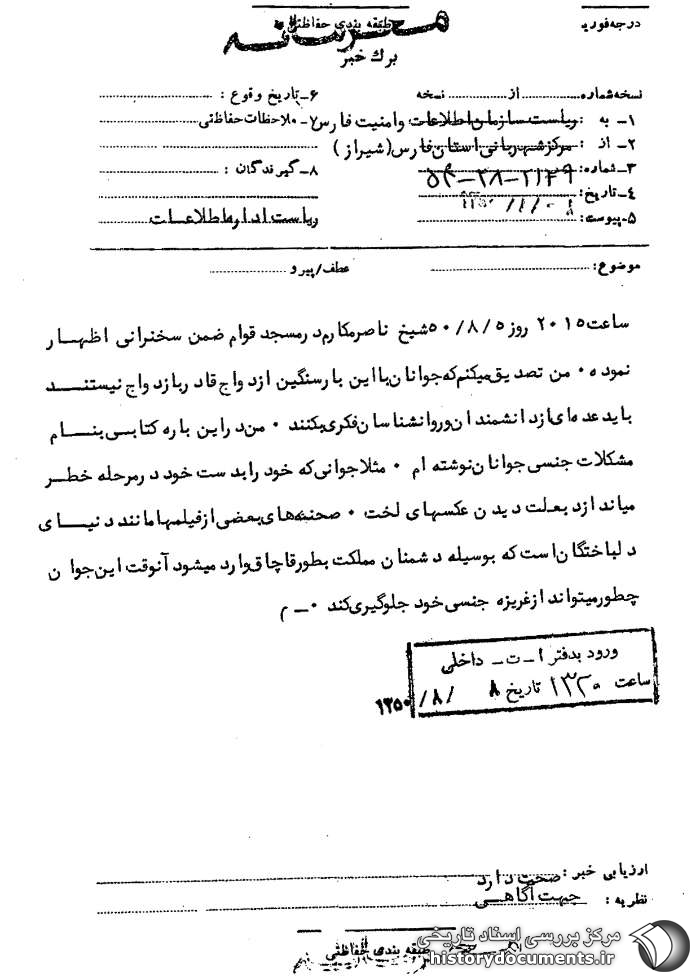 درجه فوریت
طبقه بندی حفاظتی
محرمانه
برگ خبر
نسخه شماره ........ از ........ نسخه
۶ـ تاریخ وقوع :
۱ـ به : ریاست سازمان اطلاعات وامنیت فارس
۷ـ ملاحظات حفاظتی
۲ـ از : مرکز شهربانی استان فارس (شیراز)
۳ـ شماره:
۸ـ گیرندگان :
۴ـ تاریخ:
۵ـ پیوست:
ریاست اداره اطلاعات
موضوع:
عطف/پیرو
ساعت ۲۰۱۵ روز ۵۰/۸/۵ شیخ ناصر مکارم در مسجد قوام ضمن سخنرانی اظهار
نموده ۰ من تصدیق میکنم که جوانان با این بار سنگین ازدواج قادر بازدواج نیستند
باید عده‌ای از دانشمندان و روانشناسان فکری بکنند ۰ من در این باره کتابی بنام
مشکلات جنسی جوانان نوشته ام ۰ مثلا جوانی که خود را بدست خود در مرحله خطر
میاندازد بعلت دیدن عکسهای لخت ۰ صحنه‌های بعضی از فیلمها مانند دنیای
دلباختگان است که بوسیله دشمنان مملکت بطور قاچاق وارد میشود آنوقت این جوان
چطور میتواند از غریزه جنسی خود جلوگیری کند ۰ ـ م
ورود بدفتر ا ـ ت ـ داخلی
ساعت ۱۳۲۰ تاریخ ۸ /۸/ ۱۳۵۰
ارزیابی خبر : صحت دارد
نظریه : جهت آگاهی
طبقه بندی حفاظتی
مرکز بررسی اسناد تاریخی
historydocuments.ir